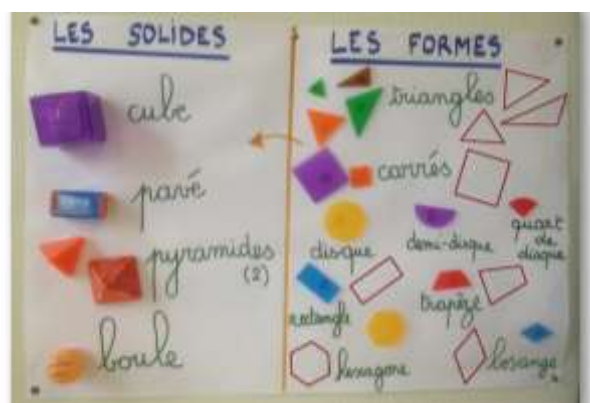 LES SOLIDES
cube
pavé
pyramides
(2)
boule
LES FORMES
triangles
carrés
disque
demi-disque
quart
de
disque
rectangle
trapèze
hexagone
losange